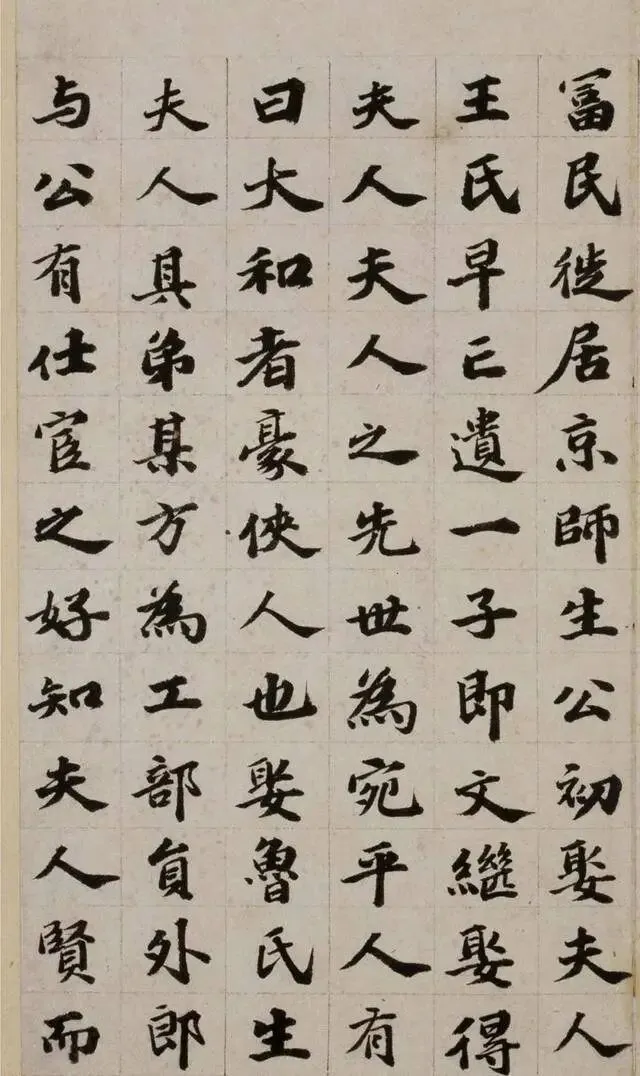 冨民徙居京師生公初娶夫人
王氏早亡遺一子即文繼娶得
夫人夫人之先世為宛平人有
曰大和者豪俠人也娶魯氏生
夫人具弟某方為工部負外郎
与公有仕宦之好知夫人賢而